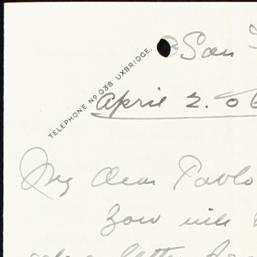 TELEPHONE Nº 038 UXBRIDGE.
San
April 2. 06
My dear Pablo
You will